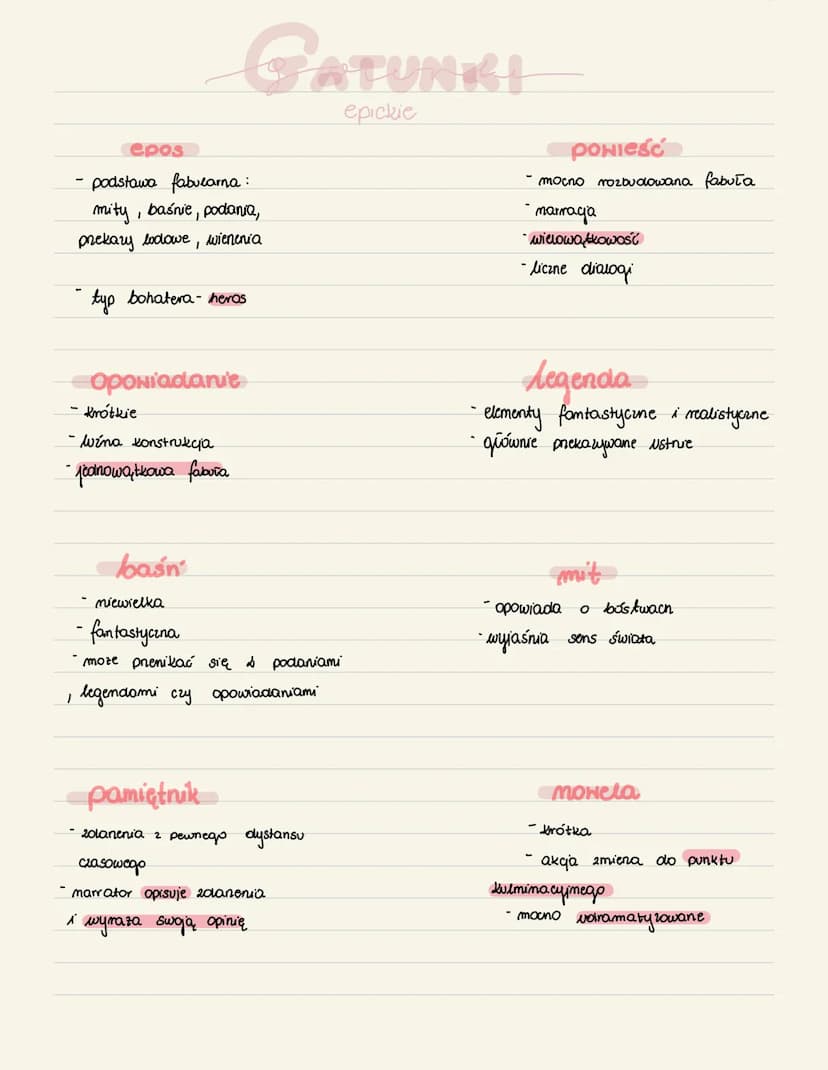 GATUNKI
gatunki
epickie
epos
- podstawa fabularna :
mity , baśnie, podania,
przekazy ludowe , wierzenia
- typ bohatera - heros
powieść
- mocno rozbudowana fabuła
- narracja
- wielowątkowość
- liczne dialogi
opowiadanie
- krótkie
- luźna konstrukcja
- jednowątkowa fabuła
legenda
- elementy fantastyczne i realistyczne
- głównie przekazywane ustnie
baśń
- niewielka
- fantastyczna
- może przenikać się z podaniami
, legendami czy opowiadaniami
mit
- opowiada o bóstwach
- wyjaśnia sens świata
pamiętnik
- zdarzenia z pewnego dystansu
czasowego
- narrator opisuje zdarzenia
i wyraża swoją opinię
nowela
- krótka
- akcja zmierza do punktu
kulminacyjnego
- mocno udramatyzowane